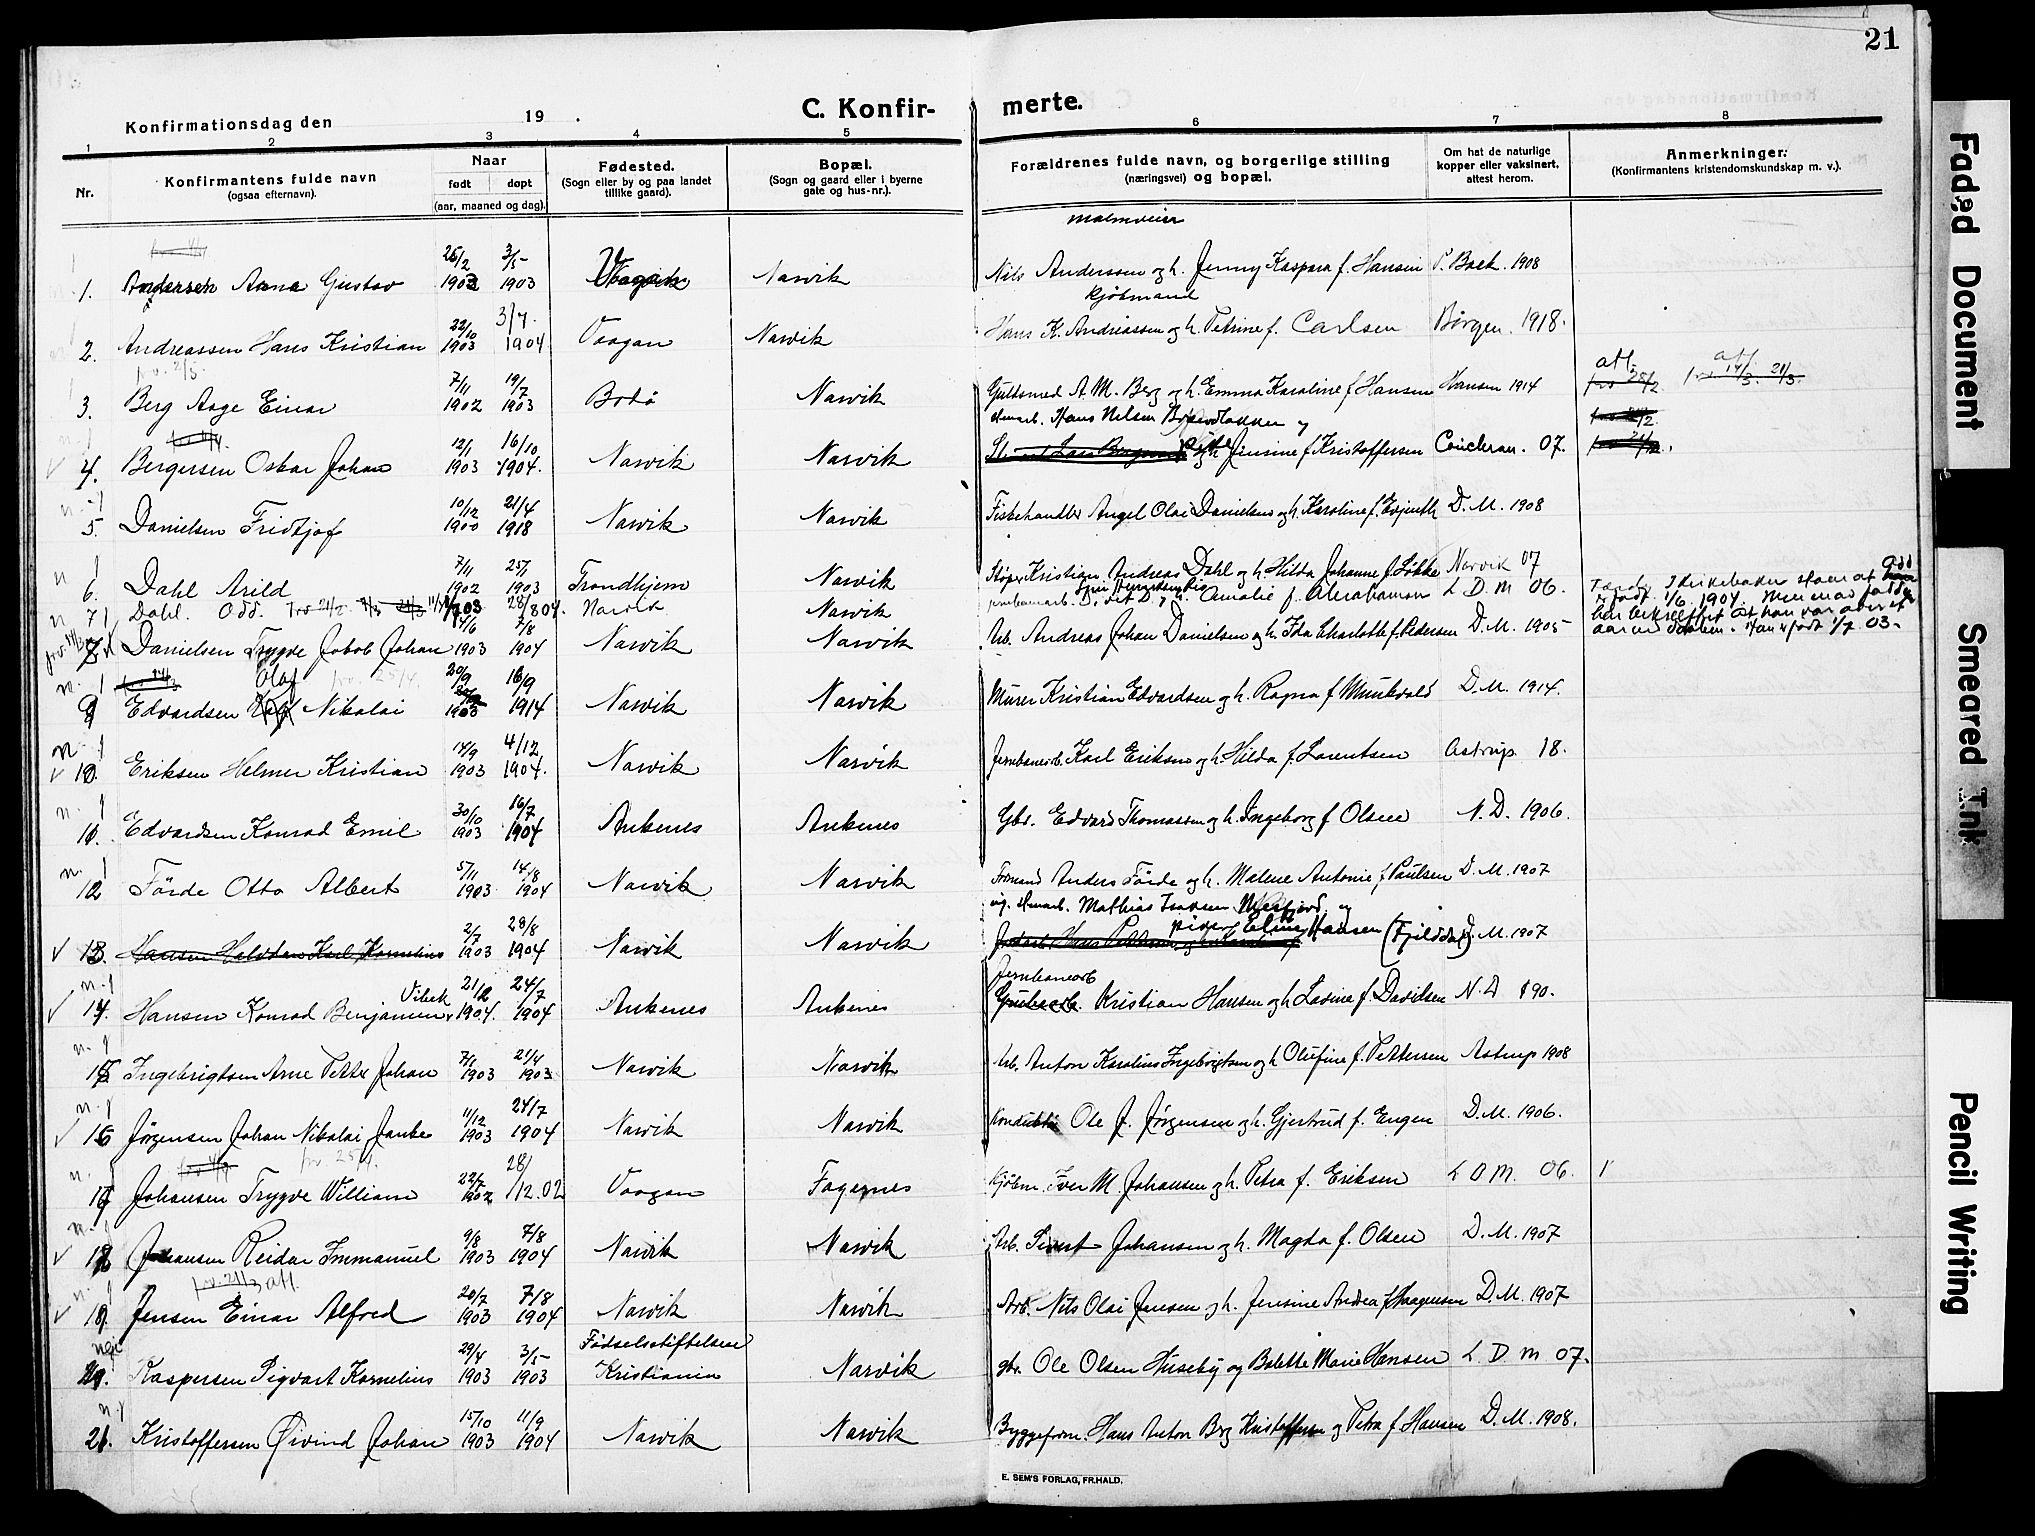 21
Konfirmationsdag den 19 . C. Konfir- merte.
1 2 3 4 5 6 7 8
Nr. Konfirmantens fulde navn (ogsaa efternavn). Naar født døpt (aar, maaned og dag). Fødested. (Sogn eller by og paa landet tillike gaard). Bopæl. (Sogn og gaard eller i byerne gate og hus-nr.). Forældrenes fulde navn, og borgerlige stilling (næringsvei) og bopæl. Om hat de naturlige kopper eller vaksinert, attest herom. Anmerkninger: (Konfirmantens kristendomskundskap m. v.).
malmveier
1. Andersen Arna Gustav 25/2 1903 3/5 1903 Narvik Nils Anderssen og h. Jenny Kaspara f. Hansen P. Boek. 1908
Kjøbmand
2. Andreassen Hans Kristian 22/10 1903 3/7. 1904 Vaagan Narvik Hans K. Andreassen og h. Petrine f. Carlsen Borgen. 1918.
3. Berg Aage Einar 7/11 1902 19/7 1903 Bodø Narvik Guldsmed A. M. Berg og h. Emma Karoline f. Hansen Hansen 1914
Hans Nilsen
4. Bergersen Oskar Johan 12/1 1903 16/10 1904. Narvik Narvik Jensine f. Kristoffersen 07.
5. Danielsen Fridtjof 10/12 1900 21/4 1918 Narvik Narvik Fiskehandler Angel Olai Danielsen og h. Karoline f. D. M. 1908
6. Dahl Arild 7/11 1902 25/1 1903 Trondhjem Narvik Kristian Andreas Dahl og h. Hilda Johanne f. Løkke Narvik 07
7 Dahl. Odd. 28/8 04. Narvik Narvik Amalie f. Abrahamsen L D. M 06.
født 1/6 1904. Men
han var over et
aar født 1/7 03.
Danielsen Trygve Jakob Johan 14/6 1903 7/8 1904 Narvik Narvik Arb. Andreas Johan Danielsen og h. Ida Charlotte f. Pedersen D. M. 1905
Olaf
9 Edvardsen Nikolai 20/9 1903 16/9 1914 Narvik Narvik Murer Kristian Edvardsen og h. Ragna f. Munkvold D. M. 1914.
10. Eriksen Helmer Kristian 14/9 1903 4/12 1904. Narvik Narvik Jernbanearb. Karl Eriksen og h. Hilda f. Lorentsen Astrup 18.
11. Edvardsen Konrad Emil 30/10 1903 16/7 1904 Ankenes Ankenes Gbr. Edvard Thomassen og h. Ingeborg f Olsen N. D. 1906.
12 Førde Otto Albert 5/11 1903 14/8 1904 Narvik Narvik Formand Anders Førde og h. Malene Antonie f. Paulsen D. M. 1907
Mathias
13. Hansen Halvdan Karl Kornelius 2/7 1903 28/8 1904 Narvik Narvik Hansen (Fjelddal) D. M. 1907
Jernbanearb
14. Hansen Konrad Benjamin Vibek 21/2 1904. 24/7 1904 Ankenes Ankenes Kristian Hansen og h. Lovine f. Davidsen N. D 190.
15 Ingebrigtsen Arne Petter Johan 7/1 1903 21/4 1903 Narvik Narvik Arb. Anton Karolius Ingebrigtsen og h Olufine f. Pettersen Astrup 1908
16 Jørgensen Johan Nikolai Janke 11/12 1903 24/7 1904 Narvik Narvik Konduktør Ole J. Jørgensen og h. Gjertrud f. Engen D. M. 1906.
17 Johansen Trygve William 22/7 1902 28/12.02 Vaagan Fagernes Kjøbm. Iver M. Johansen og h. Petra f. Eriksen L D M. 06. 1
18 Johansen Reidar Immanuel 9/8 1903 7/8 1904 Narvik Narvik Arb. Sivert Johansen og h. Magda f. Olsen D. M. 1907
19. Jensen Einar Alfred 20/7 1903 7/8 1904 Narvik Narvik Arb. Nils Olai Jensen og h. Jensine Andrea f. Haagensen D. M. 1907
20. Kaspersen Sigvart Kornelius 29/4 1903 3/5 1903 Fødselsstiftelsen Kristiania Narvik gbr. Ole Olsen Huseby og Bolette Marie Hansen L. D. M 07.
21. Kristoffersen Øivind Johan 15/10 1903 11/9 1904 Narvik Narvik Byggeform. Hans Anton Berg Kristoffersen og Petra f. Hansen D. M. 1908.
E. SEM'S FORLAG, FR.HALD.
Faded Document
Smeared Ink
Pencil Writing